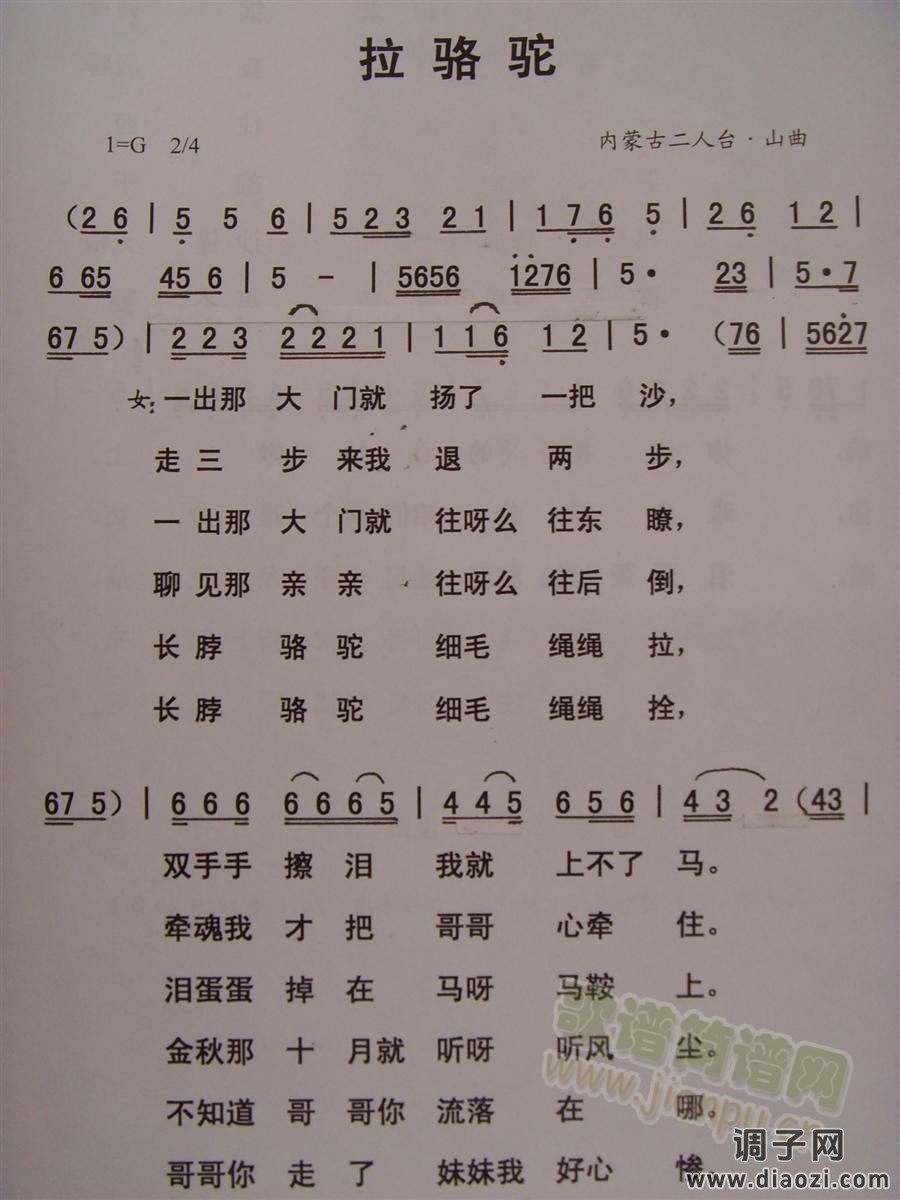 拉骆驼
1=G 2/4 内蒙古二人台·山曲
(2 6 | 5 5 6 | 5 2 3 2 1 | 1 7 6 5 | 2 6 1 2 |
6 65 45 6 | 5 - | 5656 1276 | 5· 23 | 5·7
67 5) | 2 2 3 2 2 2 1 | 1 1 6 1 2 | 5· (76 | 5627
女:一出那 大 门就 扬了 一把 沙,
走三 步 来我 退 两 步,
一出那 大 门就 往呀么 往东 瞭,
聊见那 亲亲 往呀么 往后 倒,
长脖 骆驼 细毛 绳绳 拉,
长脖 骆驼 细毛 绳绳 拴,
67 5) | 6 6 6 6 6 6 5 | 4 4 5 6 5 6 | 4 3 2 (43 |
双手手 擦泪 我就 上不了 马。
牵魂我 才把 哥哥 心牵 住。
泪蛋蛋 掉在 马呀 马鞍 上。
金秋那 十月就 听呀 听风 尘。
不知道 哥哥你 流落 在 哪。
哥哥你 走了 妹妹我 好心 惨。
歌谱简谱网
www.jianpu.cn
调子网
www.diaozi.com